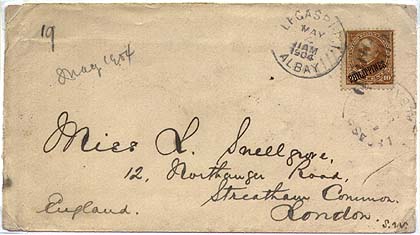 19
May 1904
LEGASPI
MAY
11AM
1904
ALBAY
PHILIPPINES
10
Miss L. Snellgrove,
12, Northanger Road,
Streatham Common.
England.
London.
S.W.